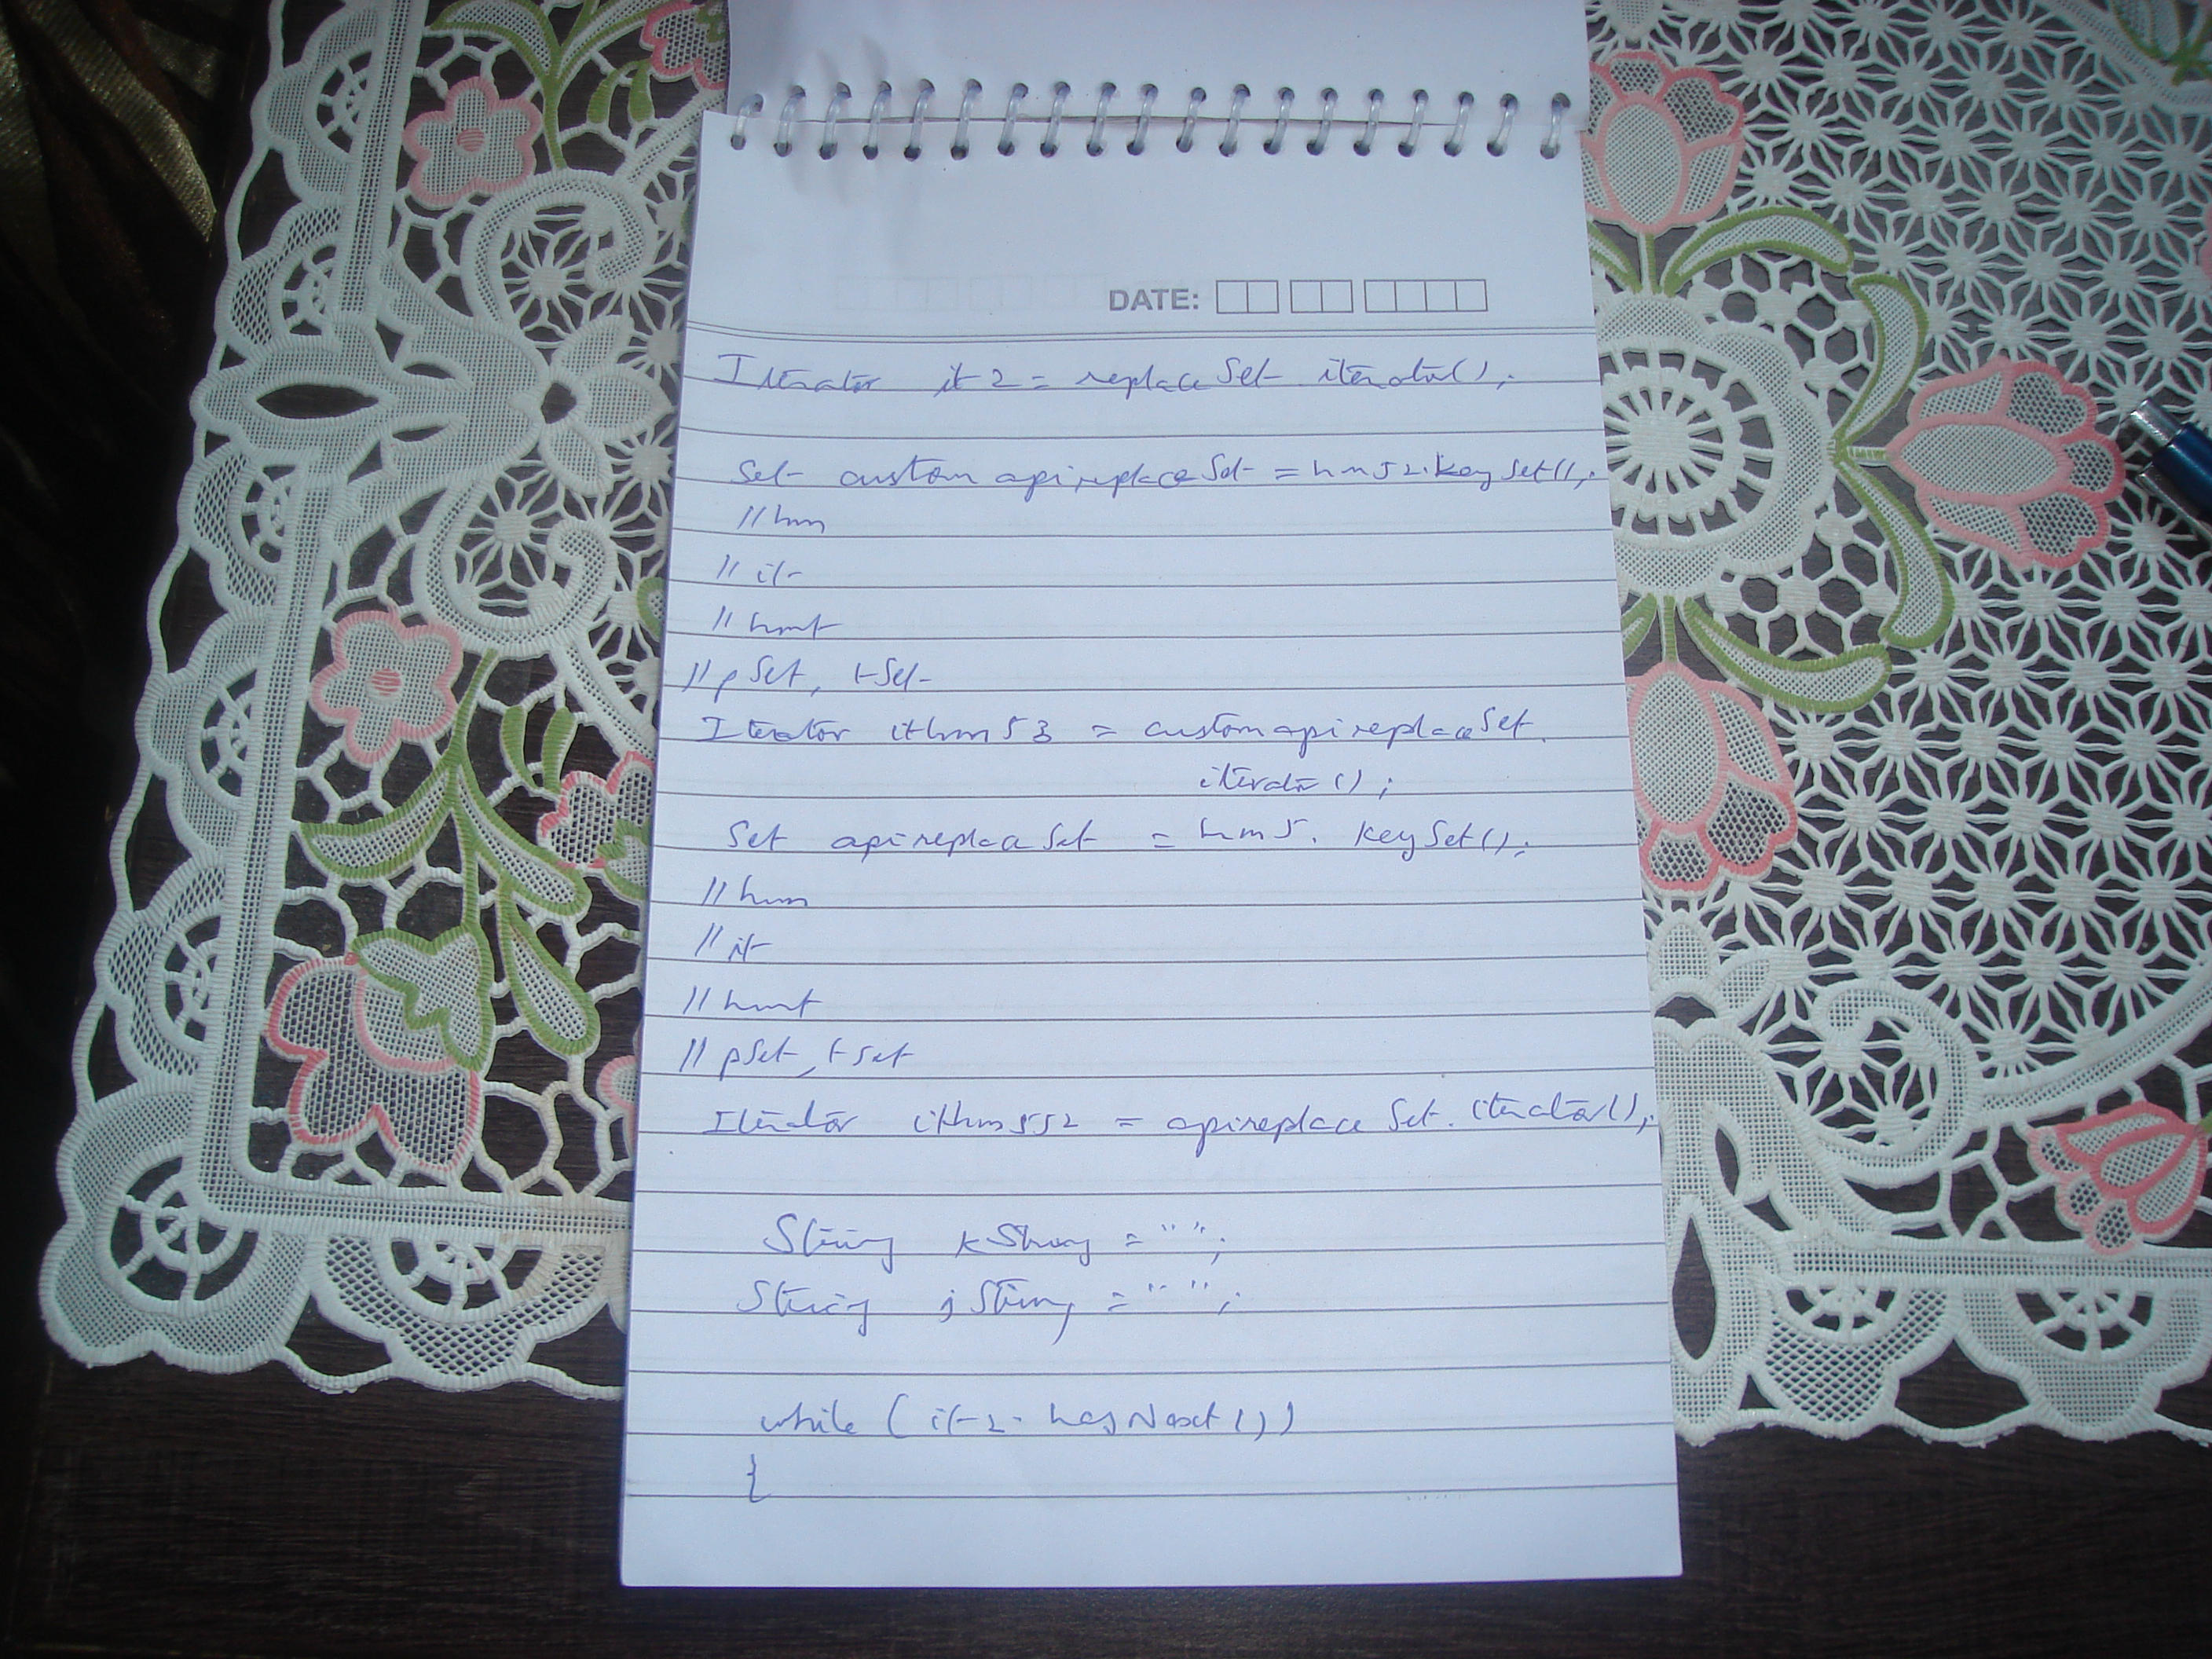 DATE:
Iterator it2 = replaceSet iterator();
Set customapireplaceSet = hm52.keySet();
//hm
//it
//hmt
//pSet, tSet
Iterator ithm53 = customapireplaceSet.
iterator();
Set apireplaceSet = hm5. keySet();
//hm
//it
//hmt
//pSet, tset
Iterator ithm552 = apireplaceSet. iterator();
String kString = "";
String jString = "";
while (it2. hasNext())
{